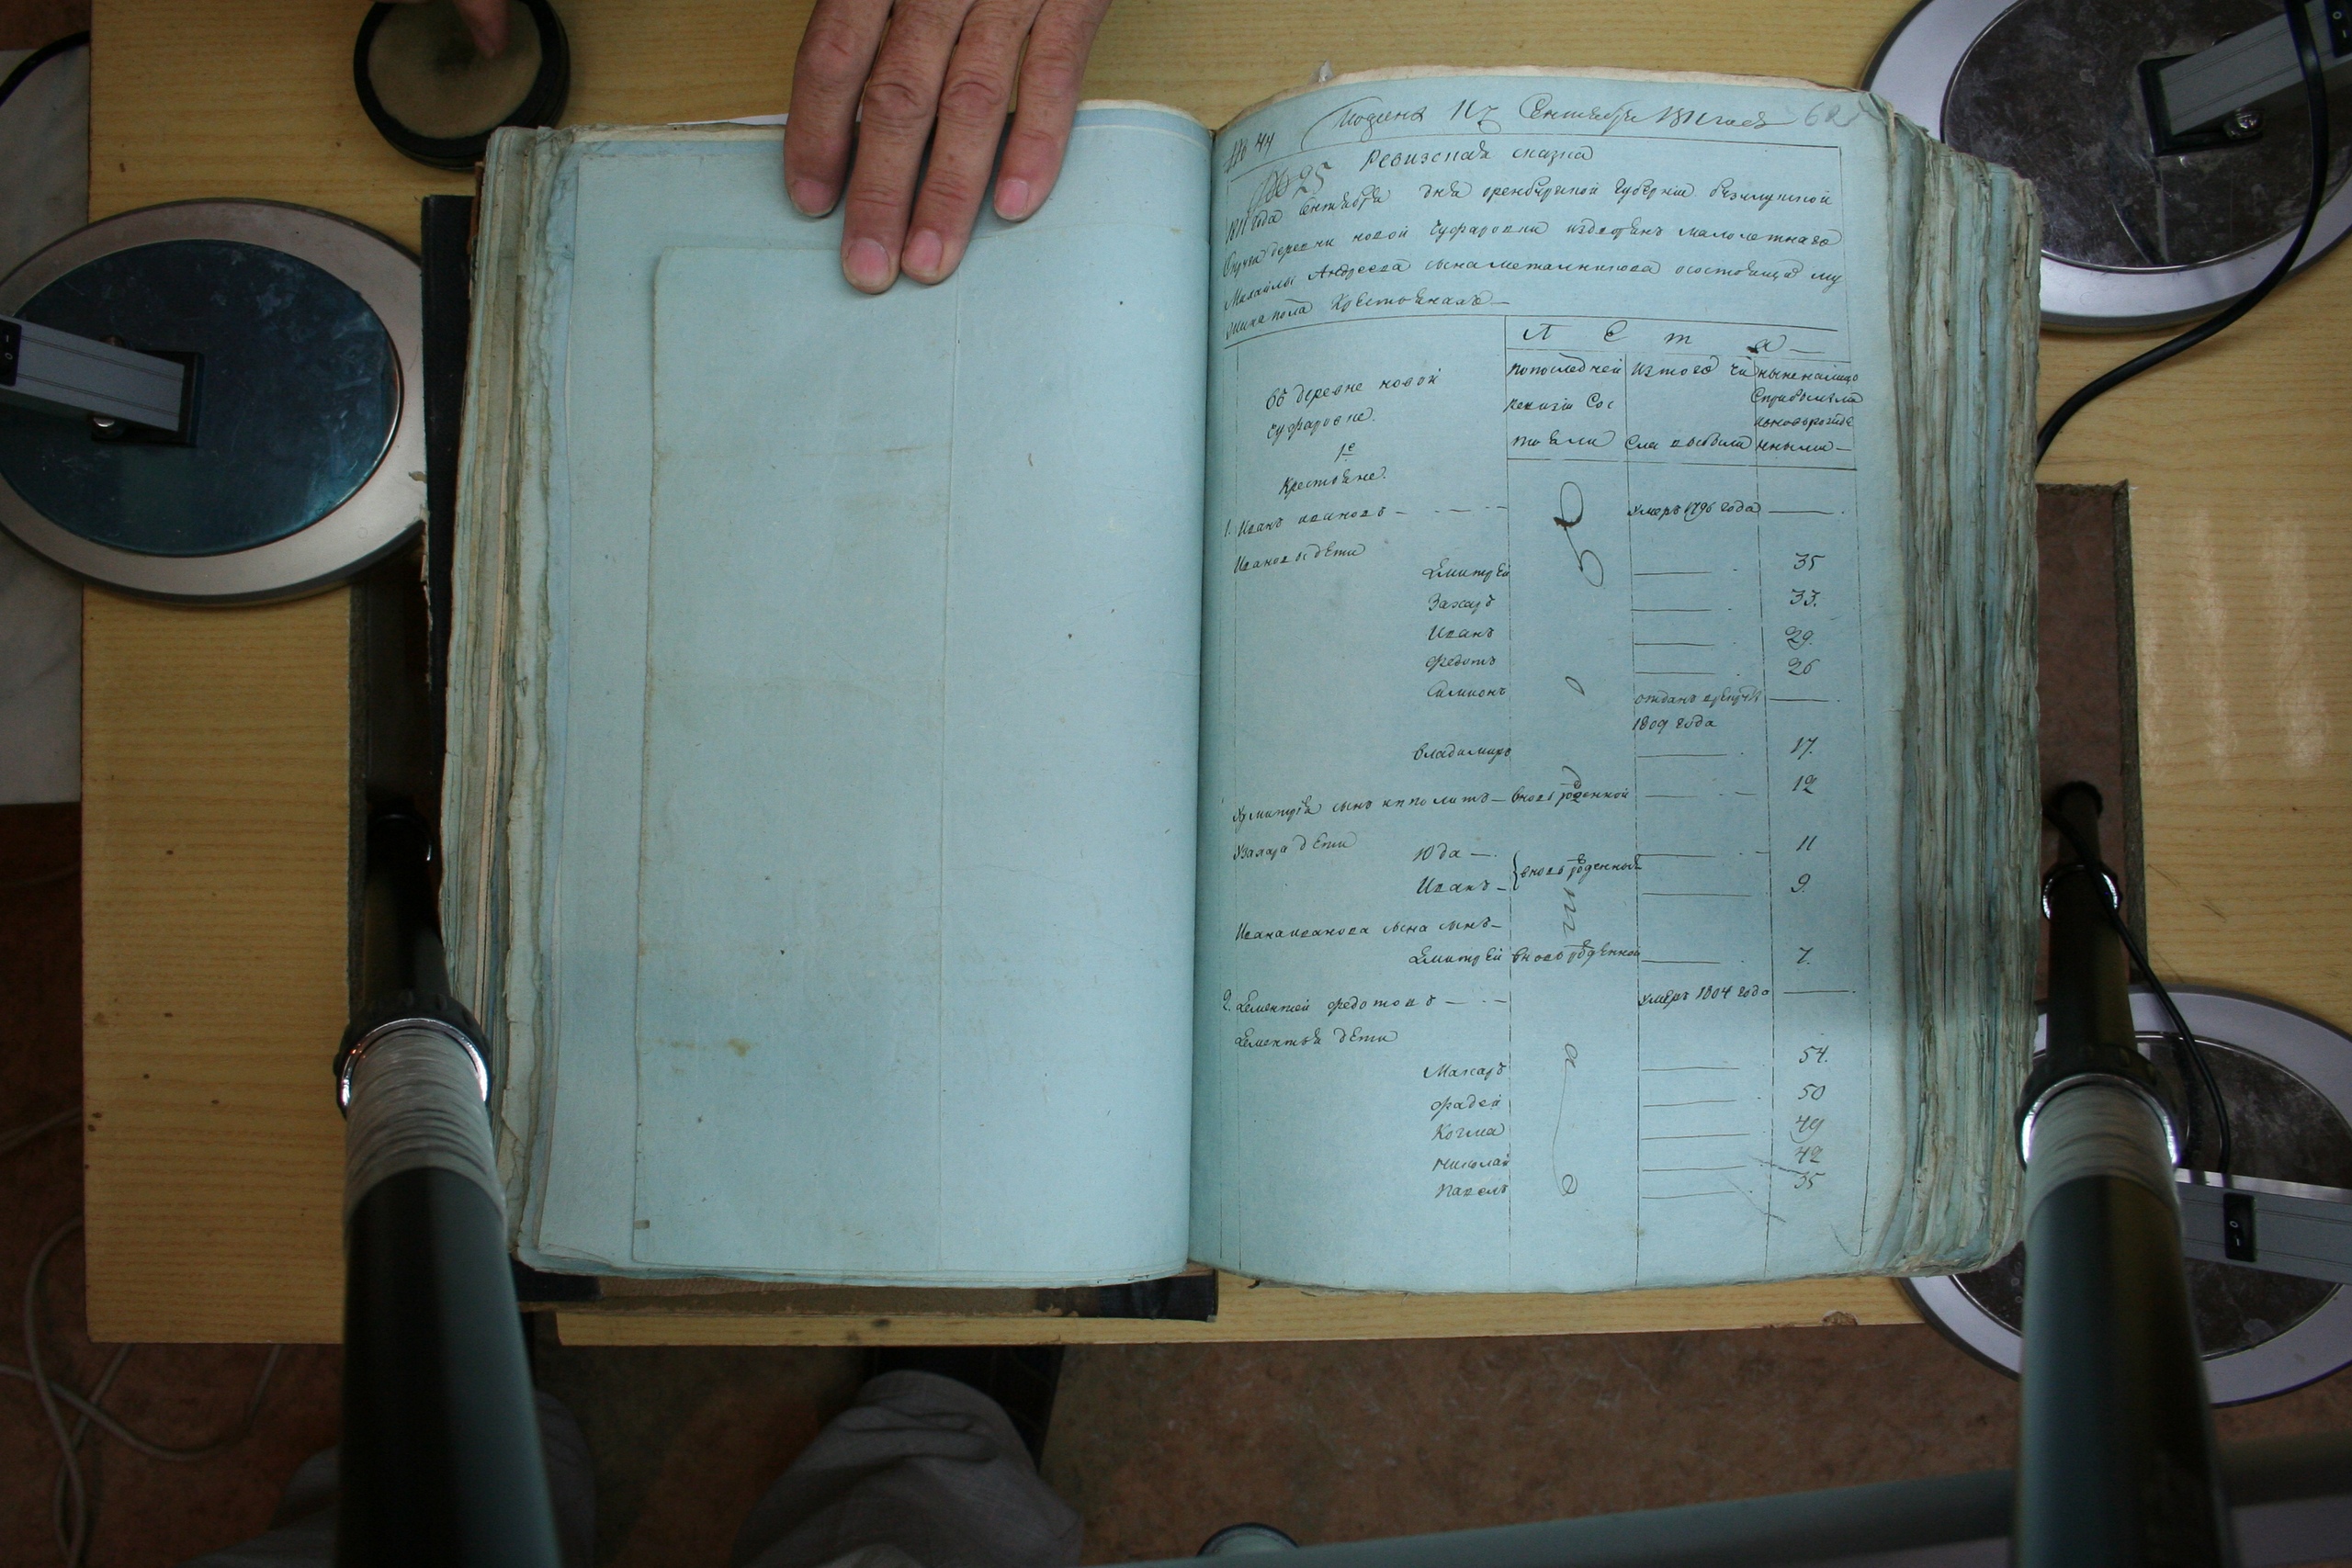 № 44 Подана 17 Сентября 1811 года 62
№ 25 Ревизская сказка
1811 года Сентября дня оренбургской Губернiи бузулуцкой
округи деревни новой Чуфаровки малолетнаго
Михайлы Андреева сына Металникова осостоящихъ му
жеска пола Крестьянахъ —
Л Е т а —
Въ деревне новой
Чуфаровке.
1е
Крестьяне.
попоследней
ревизiи Сос
тояли
Изтого чи
Сла выбыли
ныне налицо
Сприбылыми
ивновьрожде
нными —
1. Иванъ ивановъ — умеръ 1796 года —
Ивановы дети
Дмитрей — 35
Захаръ — 33.
Иванъ — 29.
Федотъ — 26
Симионъ отданъ врекруты —
1809 года
Владимиръ — 17.
Дмитрея сынъ ипполитъ — вновь рожденной — 12
Захара дети
Юда — 11
Иванъ — вновь рожденныя — 9.
Иванаиванова сына сынъ —
Дмитрей вновь рожденной — 7.
2. Дементей федотовъ — умеръ 1804 года —
Дементья дети
Макаръ — 54.
Фадей — 50
Козма — 49
Николай — 42
Павелъ — 35